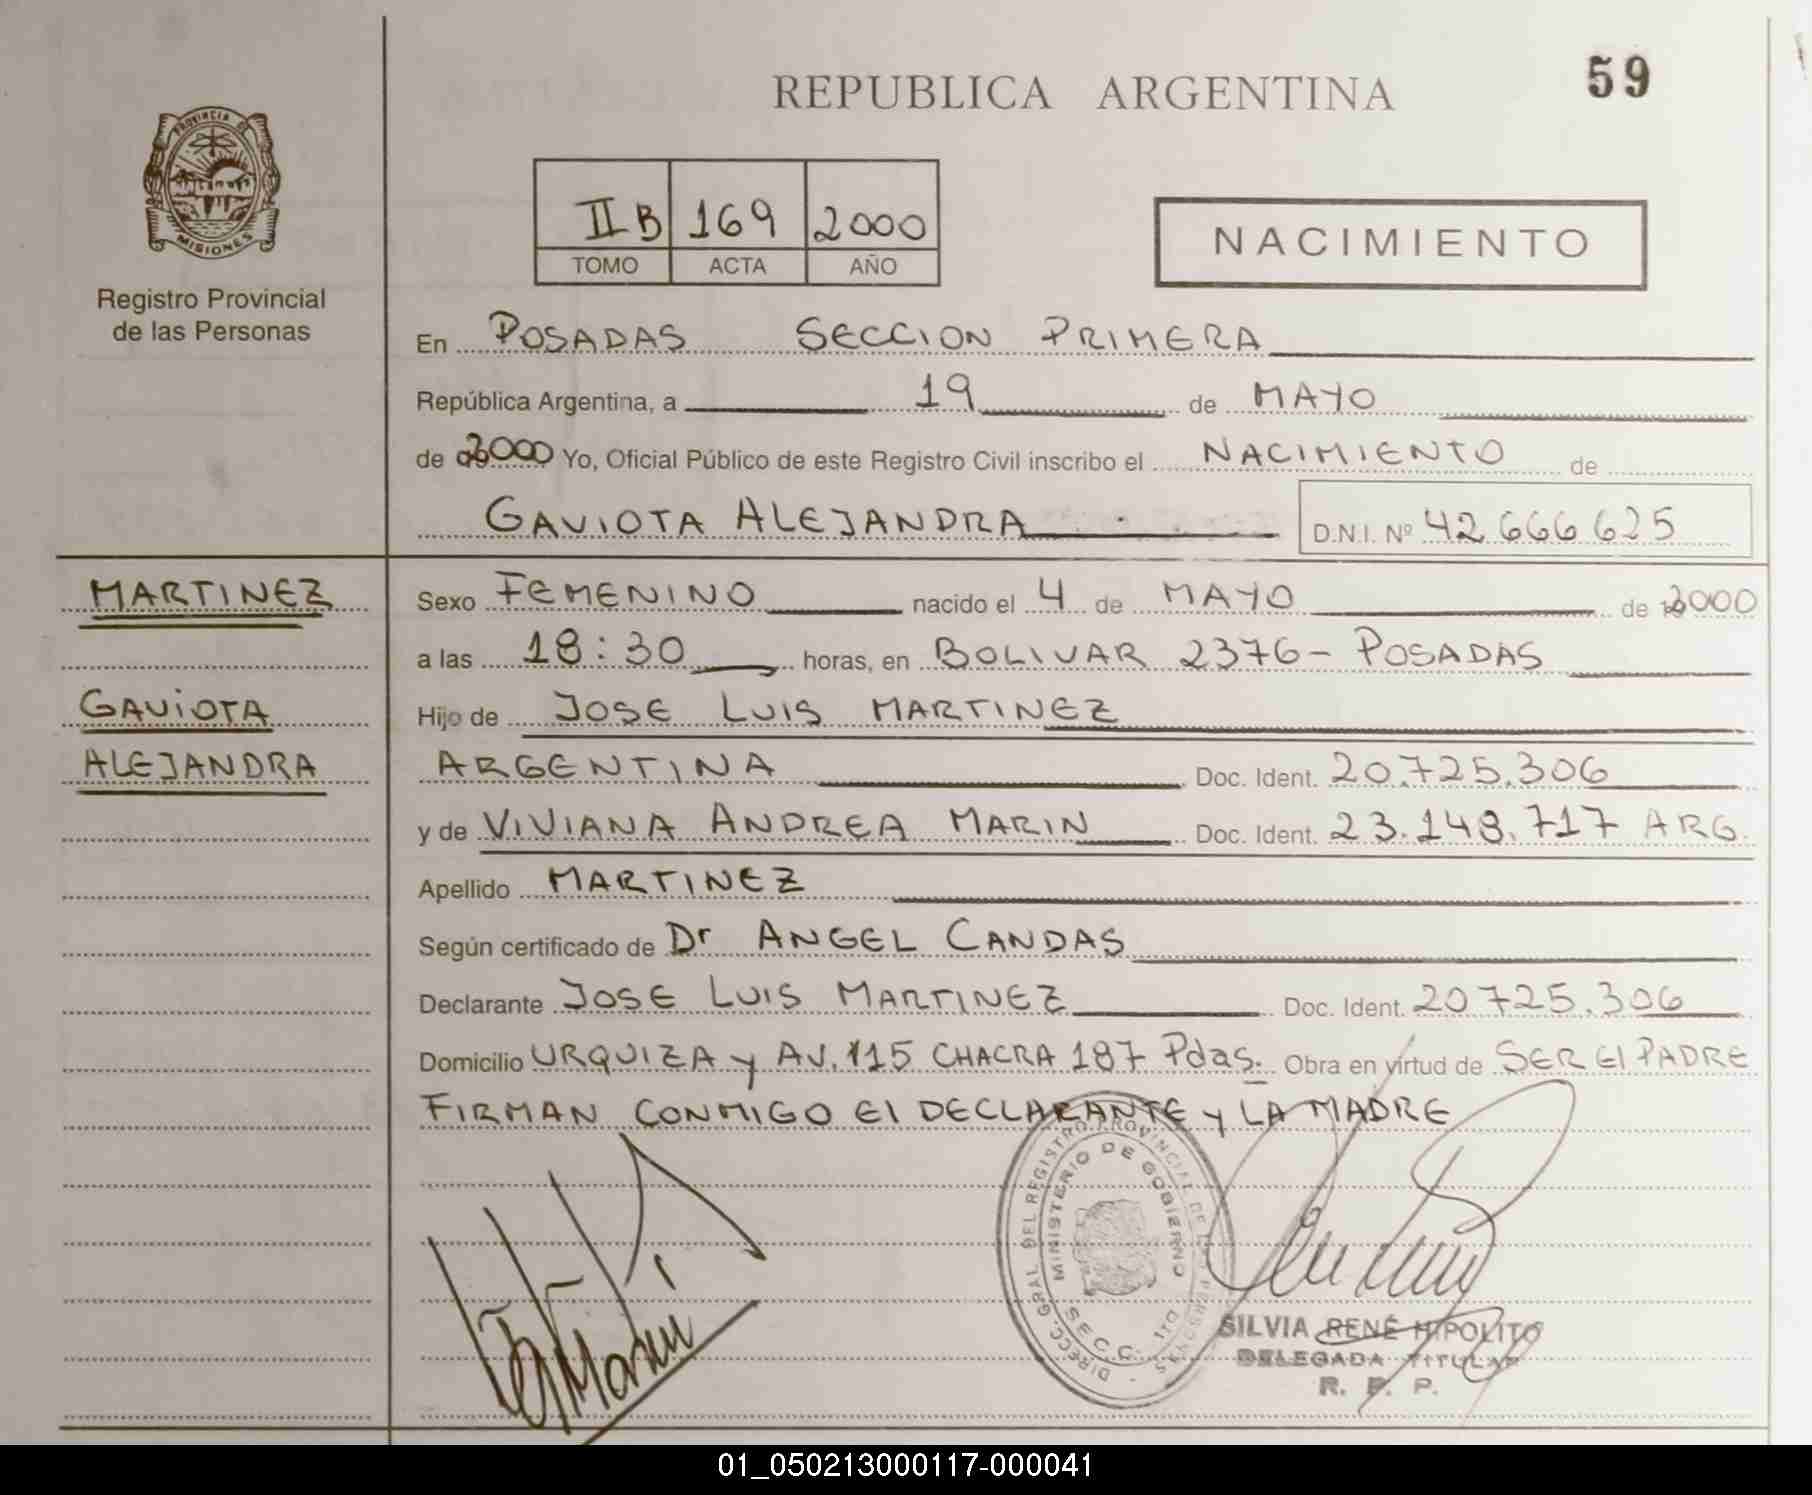 59
REPUBLICA ARGENTINA
PROVINCIA DE
MISIONES
Registro Provincial
de las Personas
II B 169 2000
TOMO ACTA AÑO
NACIMIENTO
En POSADAS SECCION PRIMERA
República Argentina, a 19 de MAYO
de 2000 Yo, Oficial Público de este Registro Civil inscribo el NACIMIENTO de
GAVIOTA ALEJANDRA D.N.I. Nº 42.666.625
MARTINEZ
GAVIOTA
ALEJANDRA
Sexo FEMENINO nacido el 4 de MAYO de 2000
a las 18:30 horas, en BOLIVAR 2376 - POSADAS
Hijo de JOSE LUIS MARTINEZ
ARGENTINA Doc. Ident. 20.725.306
y de VIVIANA ANDREA MARIN Doc. Ident. 23.148.717 ARG.
Apellido MARTINEZ
Según certificado de Dr ANGEL CANDAS
Declarante JOSE LUIS MARTINEZ Doc. Ident. 20725.306
Domicilio URQUIZA y AV. 115 CHACRA 187 Pdas. Obra en virtud de SER El PADRE
FIRMAN CONMIGO El DECLARANTE y LA MADRE
DIRECC. GRAL. DEL REGISTRO PROVINCIAL DE LAS PERSONAS
MINISTERIO DE GOBIERNO
SECC. 1ro
SILVIA RENÉ HIPOLITO
DELEGADA TITULAR
R. P. P.
01_050213000117-000041